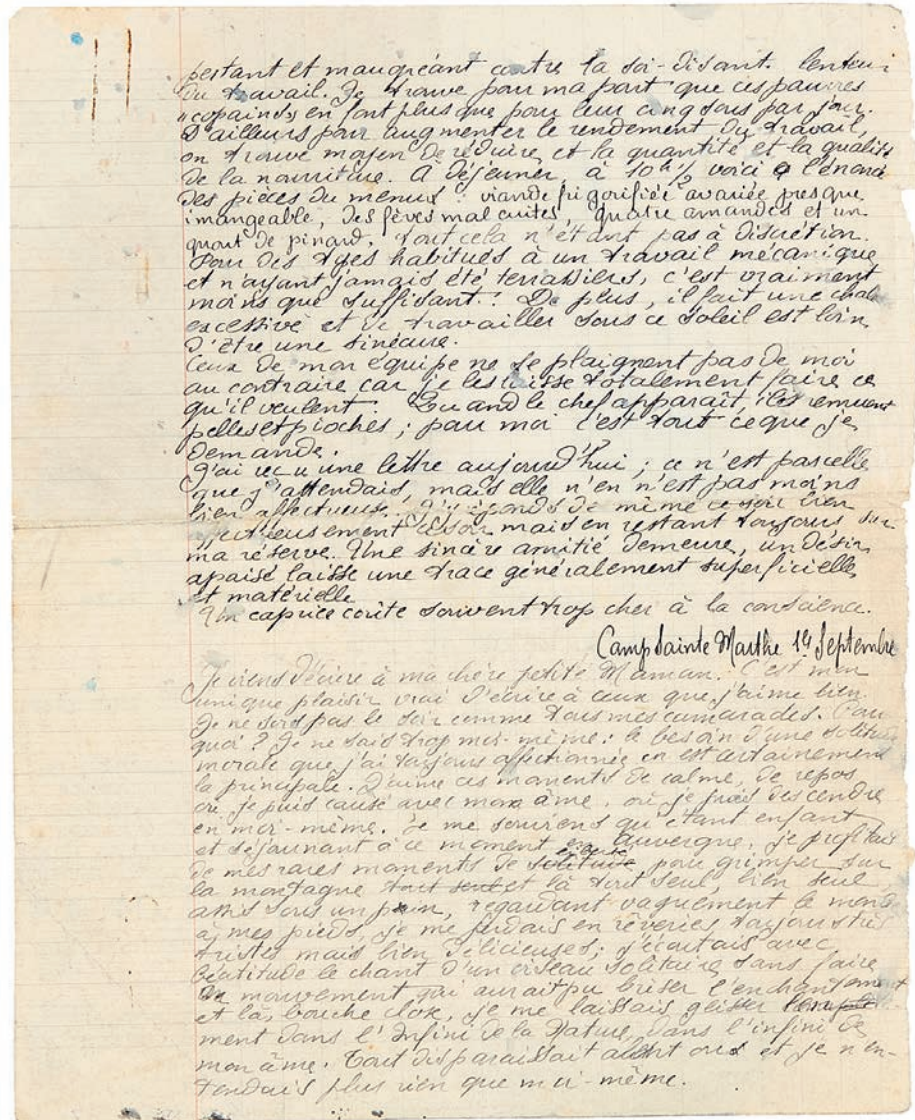 pestant et maugréant contre la soi-disant lenteur
du travail. Je trouve pour ma part que ces pauvres
"copains" en font plus que pour leur cinq sous par jour.
D'ailleurs pour augmenter le rendement du travail,
on trouve moyen de réduire et la quantité et la qualité
de la nourriture. A déjeuner, à 10h½ voici l'énoncé
des pièces du menu : viande frigorifiée avariée presque
imangeable, des fèves mal cuites, quatre amandes et un
quart de pinard, tout cela n'étant pas à discrétion.
Pour des types habitués à un travail mécanique
et n'ayant jamais été terrassiers, c'est vraiment
moins que suffisant ! De plus, il fait une chaleur
excessive et de travailler sous ce soleil est loin
d'être une sinécure.
Ceux de mon équipe ne se plaignent pas de moi
au contraire car je les laisse totalement faire ce
qu'il veulent. Quand le chef apparaît, ils remuent
pelles et pioches ; pour moi c'est tout ce que je
demande.
J'ai reçu une lettre aujourd'hui ; ce n'est pas celle
que j'attendais, mais elle n'en n'est pas moins
bien affectueuse. J'y réponds de même ce soir bien
affectueusement ce soir mais en restant toujours sur
ma réserve. Une sincère amitié demeure, un désir
apaisé laisse une trace généralement superficielle
et matérielle
Un caprice coûte souvent trop cher à la conscience.
Camp Sainte Marthe 14 Septembre
Je viens d'écrire à ma chère petite Maman. C'est mon
unique plaisir vrai d'écrire à ceux que j'aime bien.
Je ne sors pas le soir comme tous mes camarades. Pour
quoi ? Je ne sais trop moi-même : le besoin d'une solitude
morale que j'ai toujours affectionnée en est certainement
la principale. J'aime ces moments de calme, de repos
où je puis causé avec mon âme, où je puis descendre
en moi-même. Je me souviens qu'étant enfant
et séjournant à ce moment en Auvergne, je profitais
de mes rares moments de solitude pour grimper sur
la montagne tout seul et là tout seul, bien seul
assis sous un pin, regardant vaguement le monde
à mes pieds, je me perdais en rêveries toujours très
tristes mais bien délicieuses ; j'écoutais avec
béatitude le chant d'un oiseau solitaire sans faire
un mouvement qui aurait pu briser l'enchantement
et là, bouche close, je me laissais glisser
ment dans l'Infini de la Nature, dans l'infini de
mon âme. Tout disparaissait et je n'en-
tendais plus rien que moi-même.